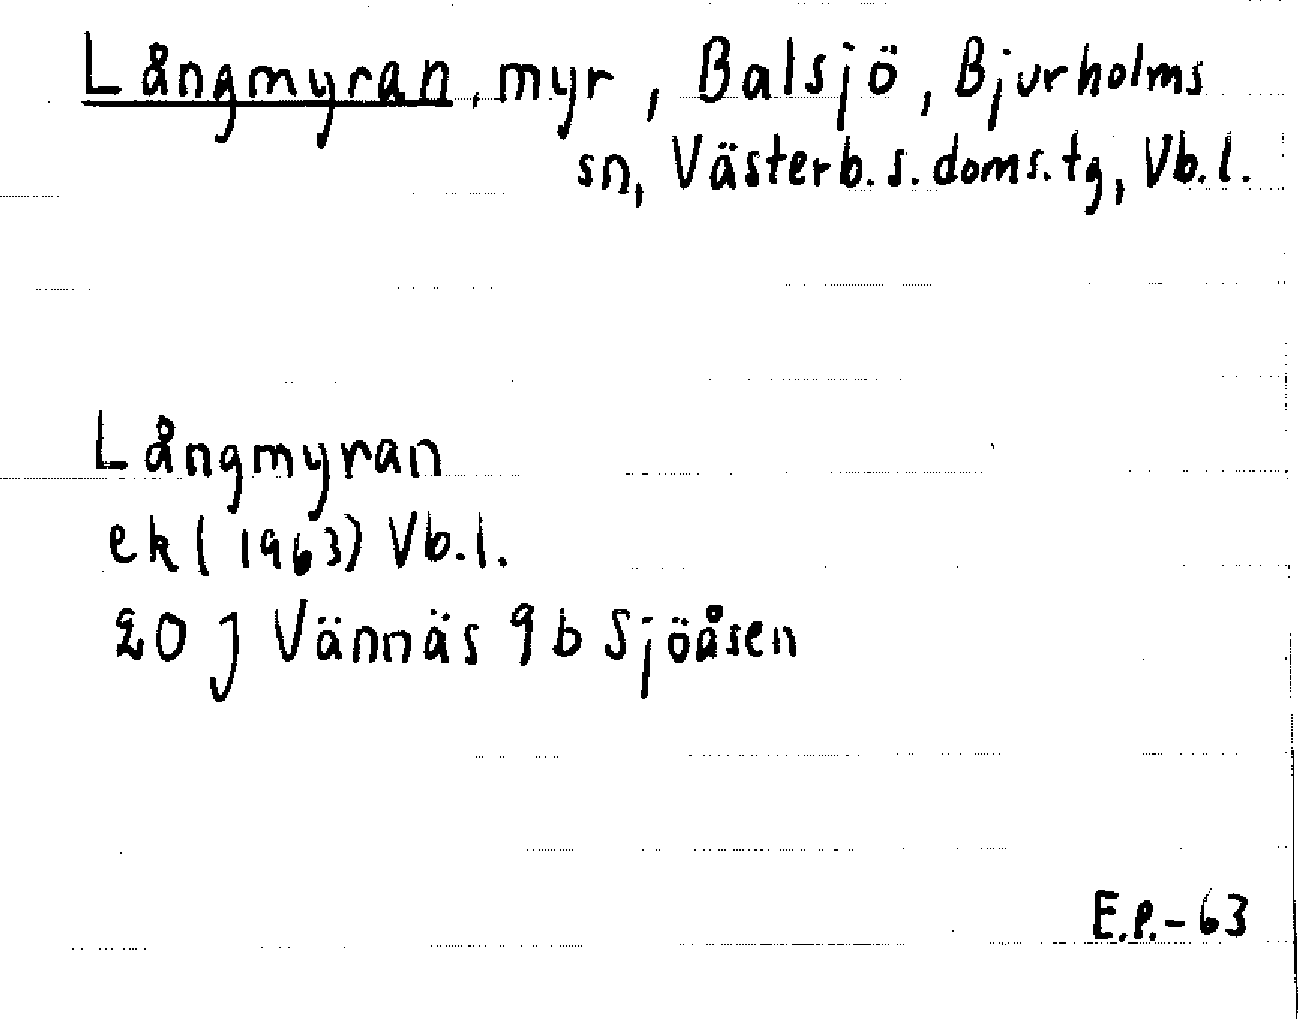 Långmyran, myr, Balsjö, Bjurholms
sn, Västerb. s. doms. tg, Vb. l.
Långmyran
ek (1963) Vb. l.
20 J Vännäs 9 b Sjöåsen
E.P.-63